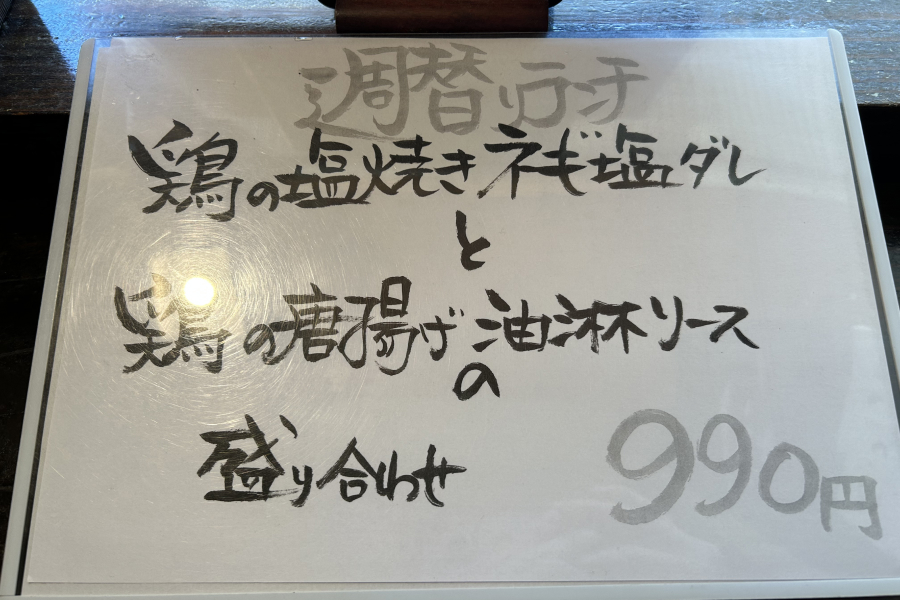 週替りランチ
鶏の塩焼きネギ塩ダレ
と
鶏の唐揚げ油淋リース
の
盛り合わせ
990円